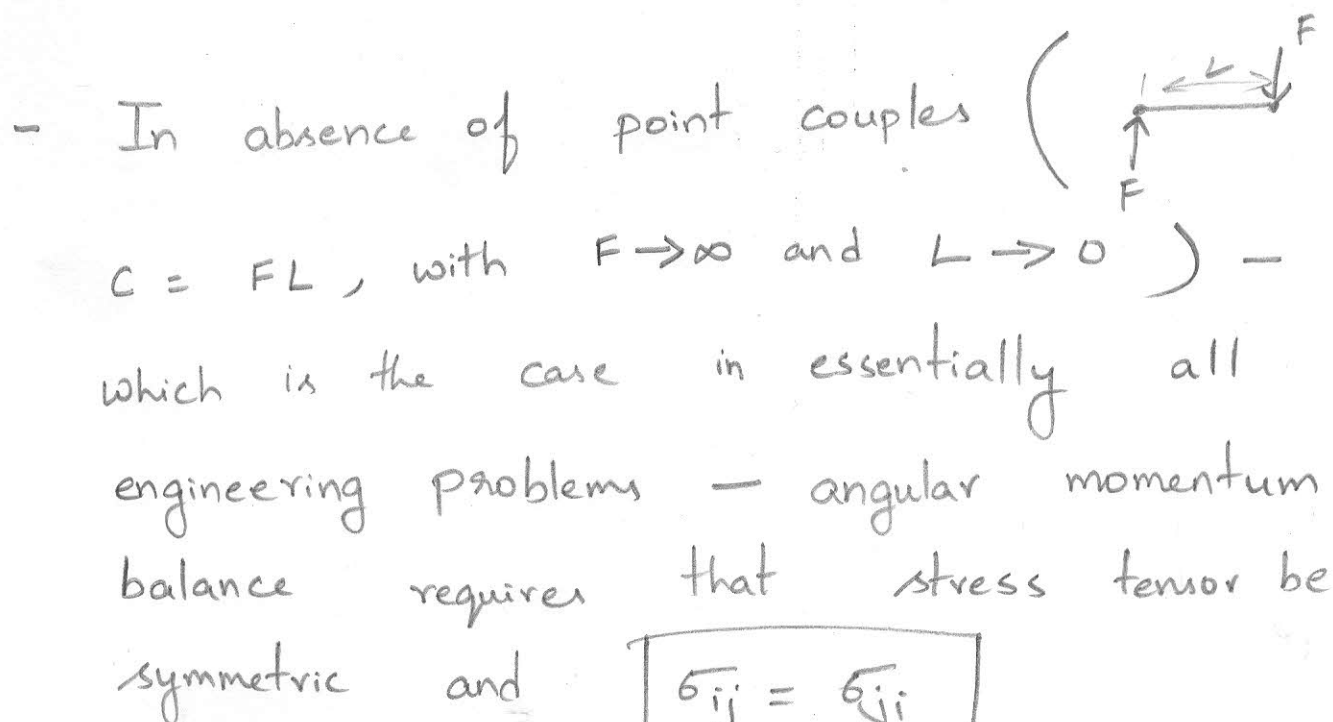 - In absence of point couples ( L F F
C = FL, with F→∞ and L→0 ) -
which is the case in essentially all
engineering problems - angular momentum
balance requires that stress tensor be
symmetric and σij = σji